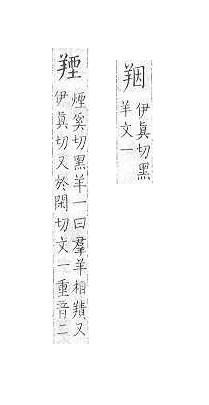 伊眞切黑
羊文一
𦎣
煙奚切黑羊一曰羣羊相䍴又
伊眞切又於閑切文一重音二